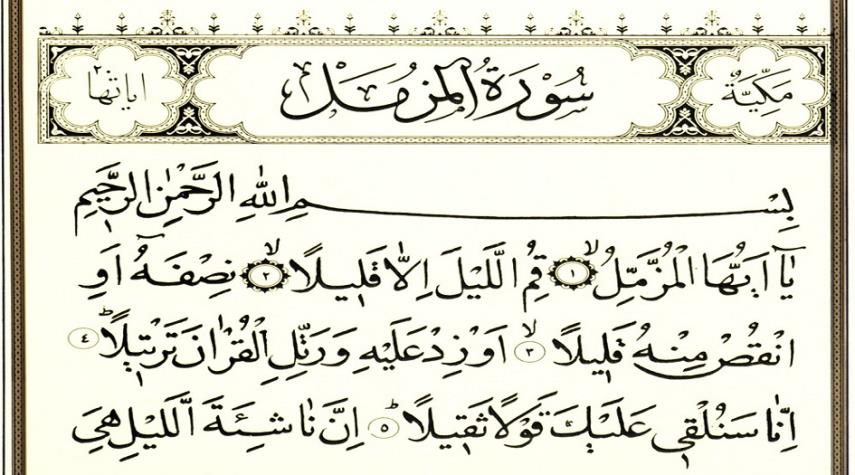 مكية سورة المزمل اياتها ٢٠
بِسْمِ اللهِ الرَّحْمٰنِ الرَّحٖيمِ
يَٓا اَيُّهَا الْمُزَّمِّلُ ﴿١﴾ قُمِ الَّيْلَ اِلَّا قَلٖيلًا ﴿٢﴾ نِصْفَهُٓ اَوِ
انْقُصْ مِنْهُ قَلٖيلًا ﴿٣﴾ اَوْ زِدْ عَلَيْهِ وَرَتِّلِ الْقُرْاٰنَ تَرْتٖيلًا ﴿٤﴾
اِنَّا سَنُلْقٖي عَلَيْكَ قَوْلًا ثَقٖيلًا ﴿٥﴾ اِنَّ نَاشِئَةَ الَّيْلِ هِيَ